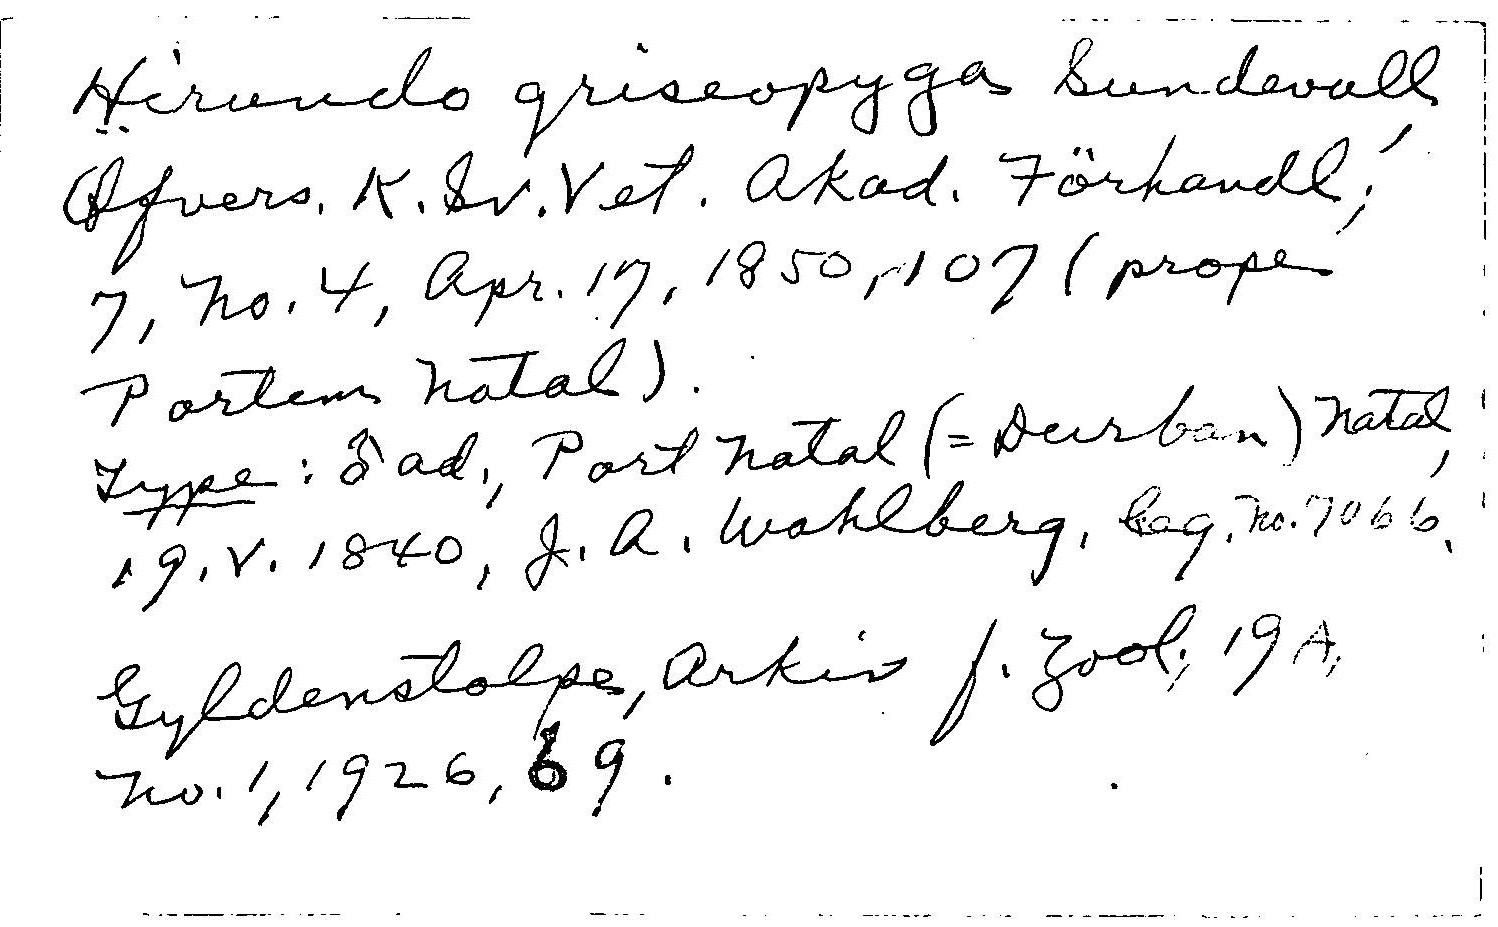 Hirundo griseopyga Sundevall
Öfvers. K. Sv. Vet. Akad. Förhandl.,
7, No. 4, Apr. 17, 1850, 107 (prope
Portem Natal).
Type: ♂ ad., Port Natal (= Durban) Natal,
19.V.1840, J. A. Wahlberg. Cag. No. 7066.
Gyldenstolpe, Arkiv f. Zool., 19A,
No. 1, 1926, 69.